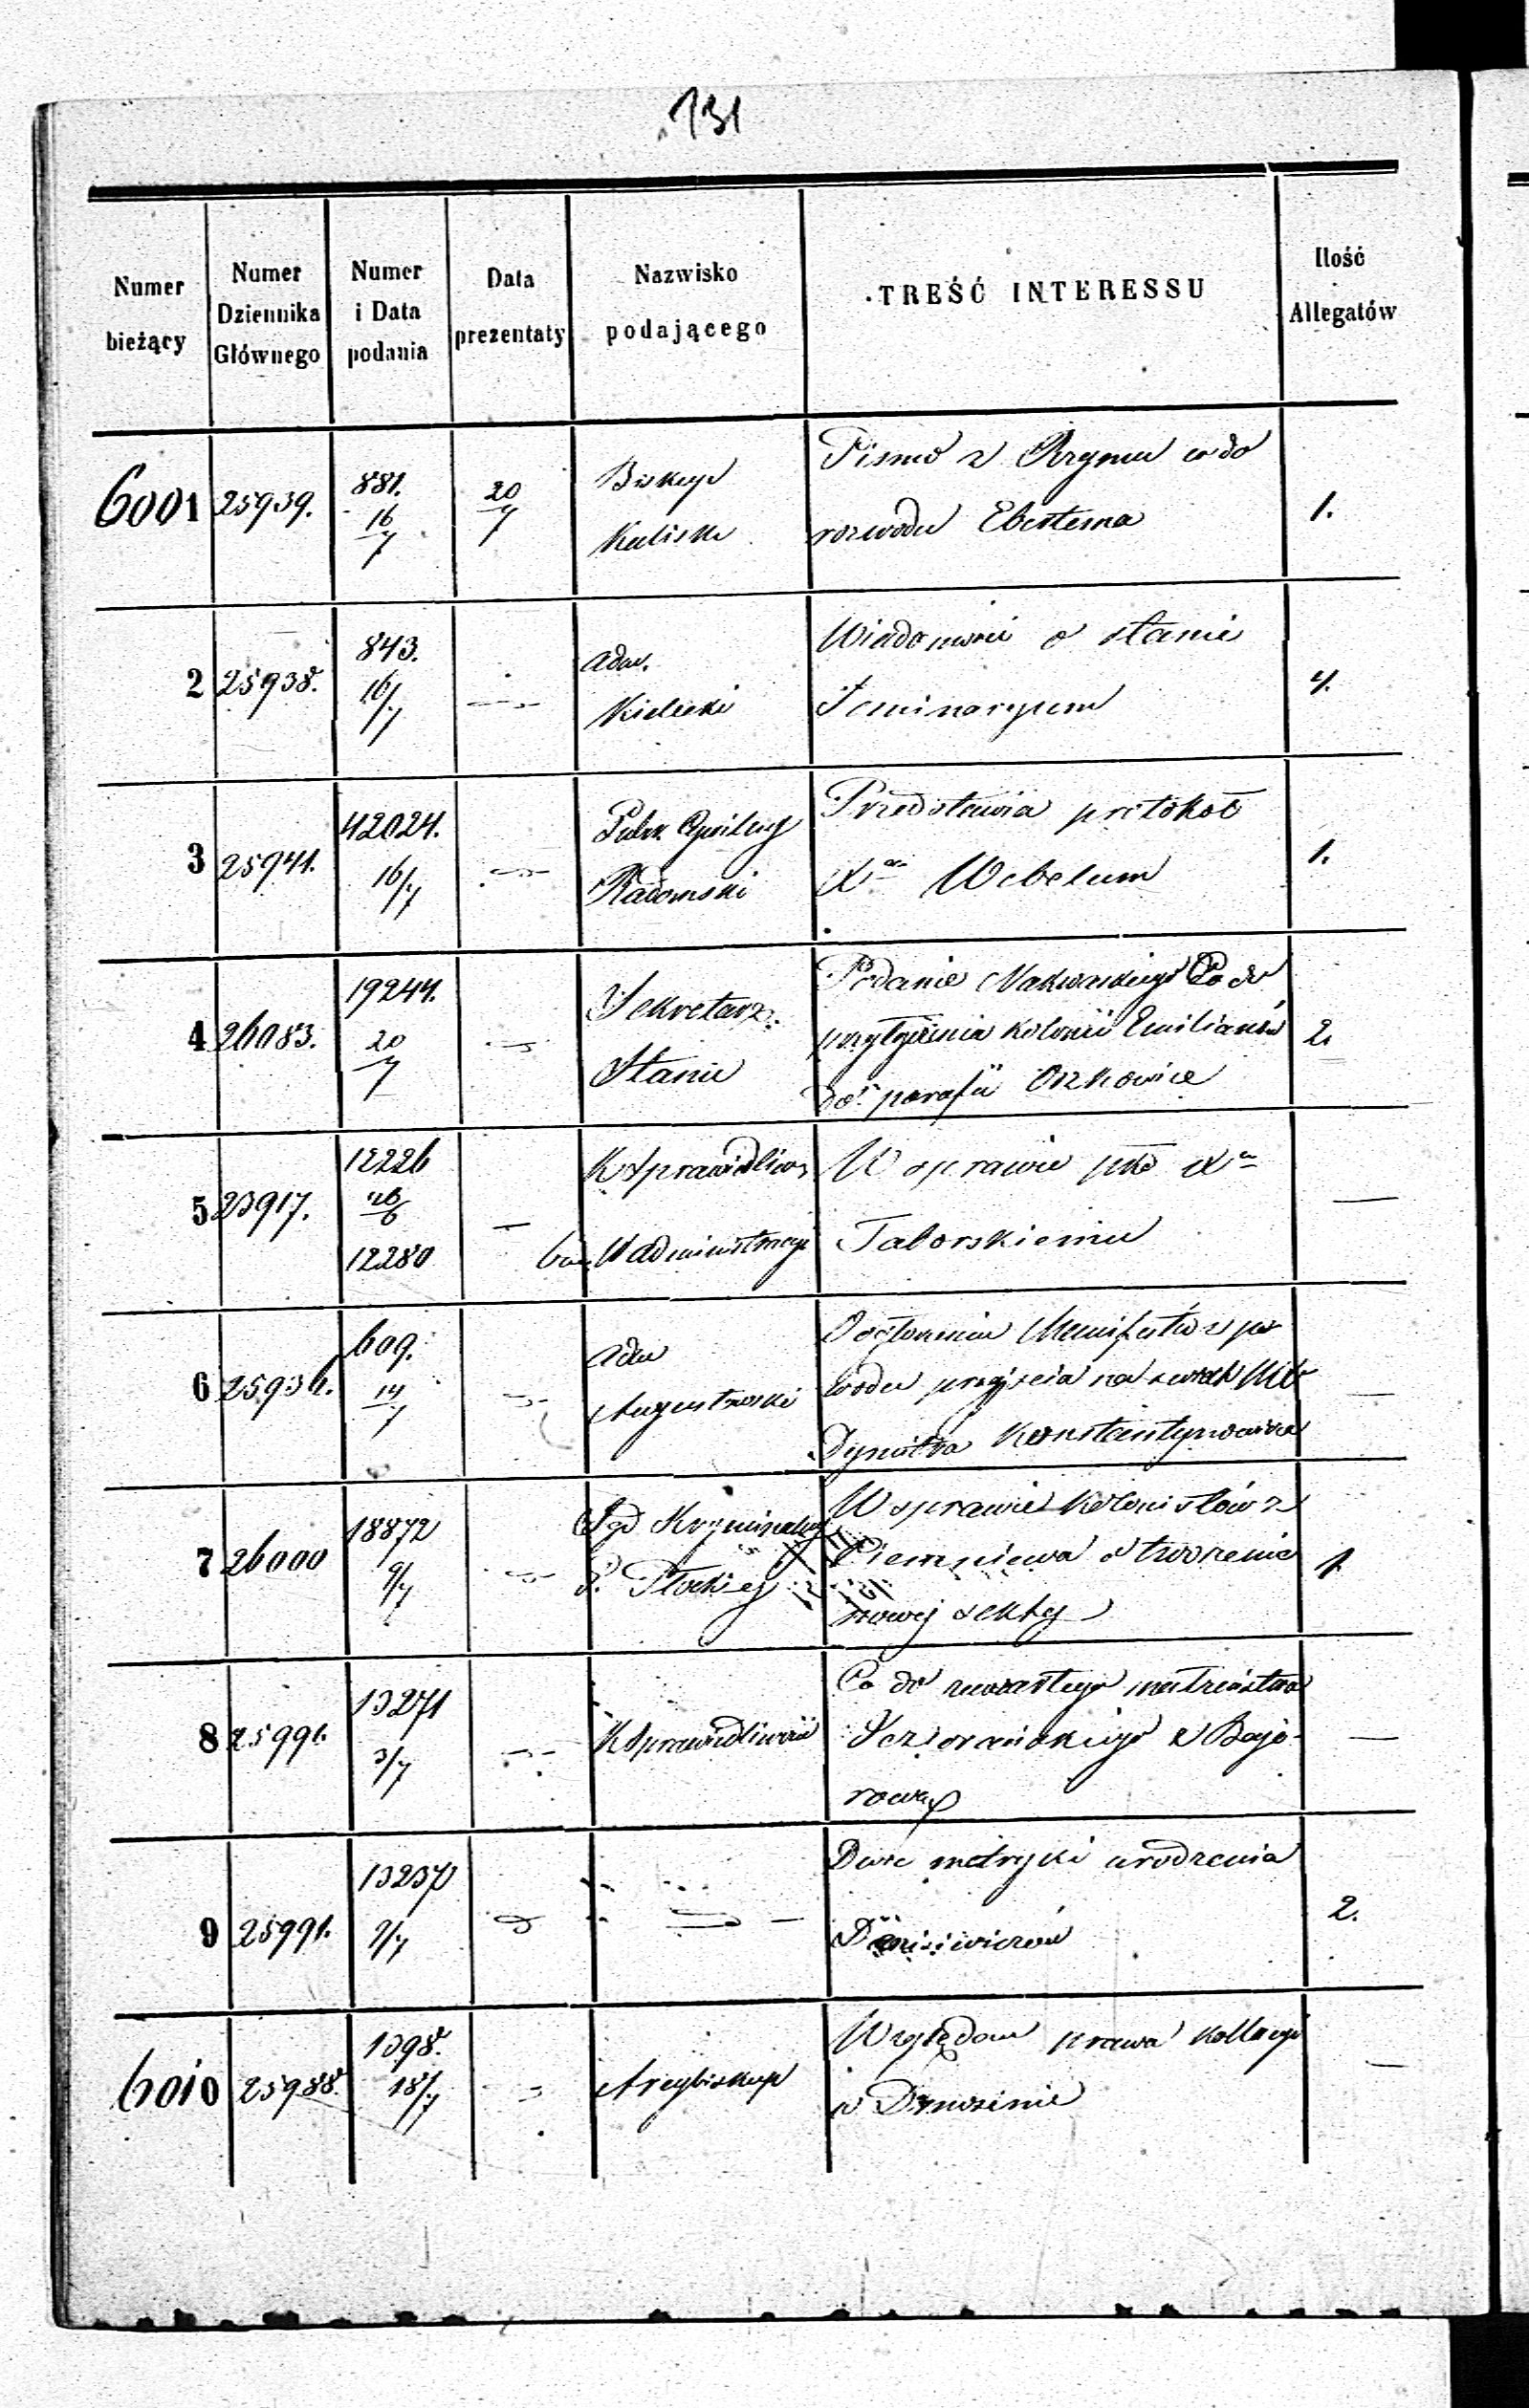 131
Numer bieżący | Numer Dziennika Głównego | Numer i Data podania | Data prezentaty | Nazwisko podającego | TREŚĆ INTERESSU | Ilość Allegatów
6001 | 25939. | 881. 16/7 | 20/7 | Biskup Kaliski | Pismo z Rzymu co do rozwodu Ebertema | 1.
2 | 25938. | 843. 16/7 | — | adm. Kielecki | Wiadomość o stanie Seminaryum | 4.
3 | 25941. | 42024. 16/7 | — | Gub. Cywilny Radomski | Przedstawia protokół Xa Webelum | 1.
4 | 26083. | 19244. 20/7 | — | Sekretarz Stanu | Podanie Nakwaskiego Co do przyłączenia kolonii Emilianów do parafii Oszkowice | 2.
5 | 23917. | 12226 26/6 12280 | — | K Sprawiedliwoś W administracyi | W sprawie pko Xu Taborskiemu | —
6 | 25936. | 609. 14/7 | — | adm Augustowski | O ogłoszeniu Manifestu z powodu przyjścia na świat WX Dymitra Konstantynowicza | —
7 | 26000 | 18872 9/7 | — | Sąd Kryminalny G. Płockiej | W sprawie kolonistów z o tworzenie nowej sekty | 1
8 | 25996. | 13271 3/7 | — | K Sprawiedliwości | Co do zawartego małżeństwa Jeziorańskiego z Bajerową | —
9 | 25991. | 13237 9/7 | — | — | Dwie metryki urodzenia | 2.
6010 | 25988. | 1398. 18/7 | — | Arcybiskup | Względem prawa kollacyi w | —